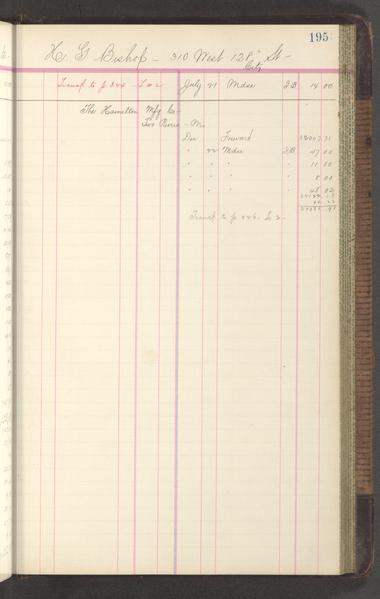 195
H. G. Bishop - 310 West 128" St -
City
Transf. to p 344 L o 2 July 21 Mdse S.B. 14 00
The Hamilton Mfg Co -
Two Rivers - Wis
Dec Forward
" 22 Mdse S.B. 47 00
" " " " 11 00
" " " " 8 00
" " " " 48 02
Transf. to p. 226. L. 2.